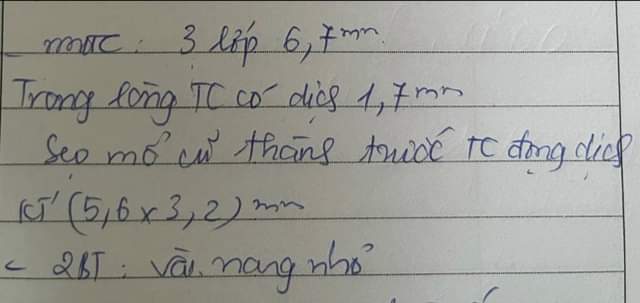 - mtc: 3 lớp 6,7mm
Trong lòng TC có dịch 1,7mm
Sẹo mổ cũ thành trước TC đọng dịch
KT (5,6 x 3,2) mm
- 2BT: vài nang nhỏ